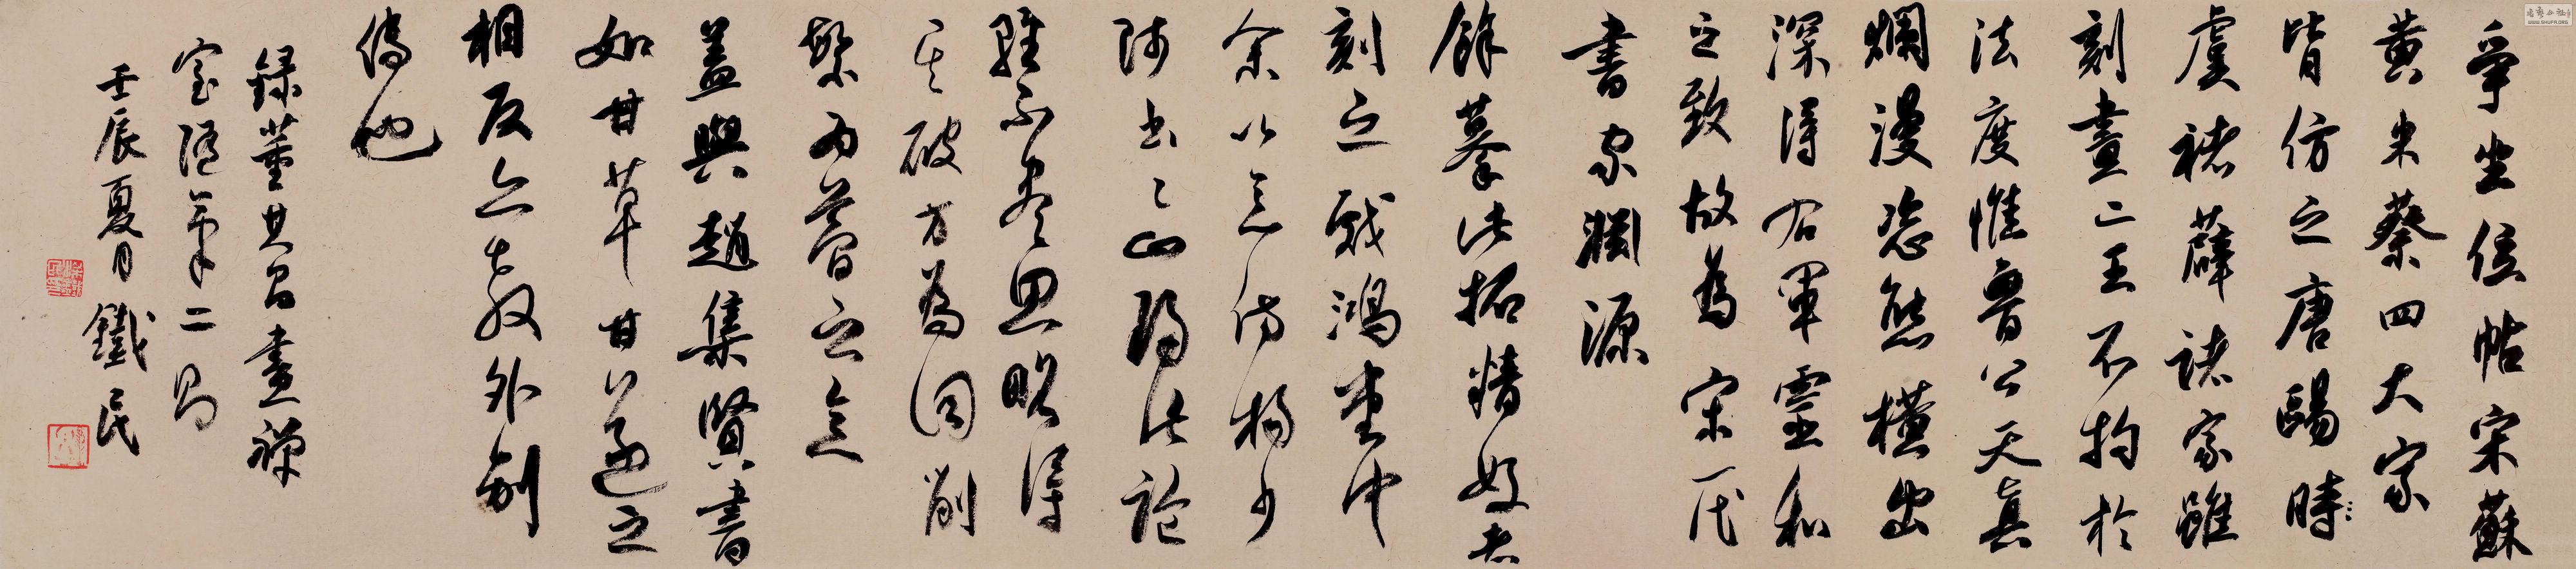 爭坐位帖宋蘇
黃米蔡四大家
皆仿之唐歐時
虞褚薛諸家雖
刻畫二王不拘於
法度惟魯公天真
爛漫恣態橫出
深得右軍靈和
之致故為宋一代
書家淵源
餘摹此拓精好者
刻之戲鴻堂中
余以意仿楊少
師書〻山陽此論
雖不盡思略得
其破方為圓削
繁為簡之意
蓋與趙集賢書
如甘草甘遂之
相反亦教外別
傳也
錄董其昌畫禪
室隨筆二則
壬辰夏月 鐵民